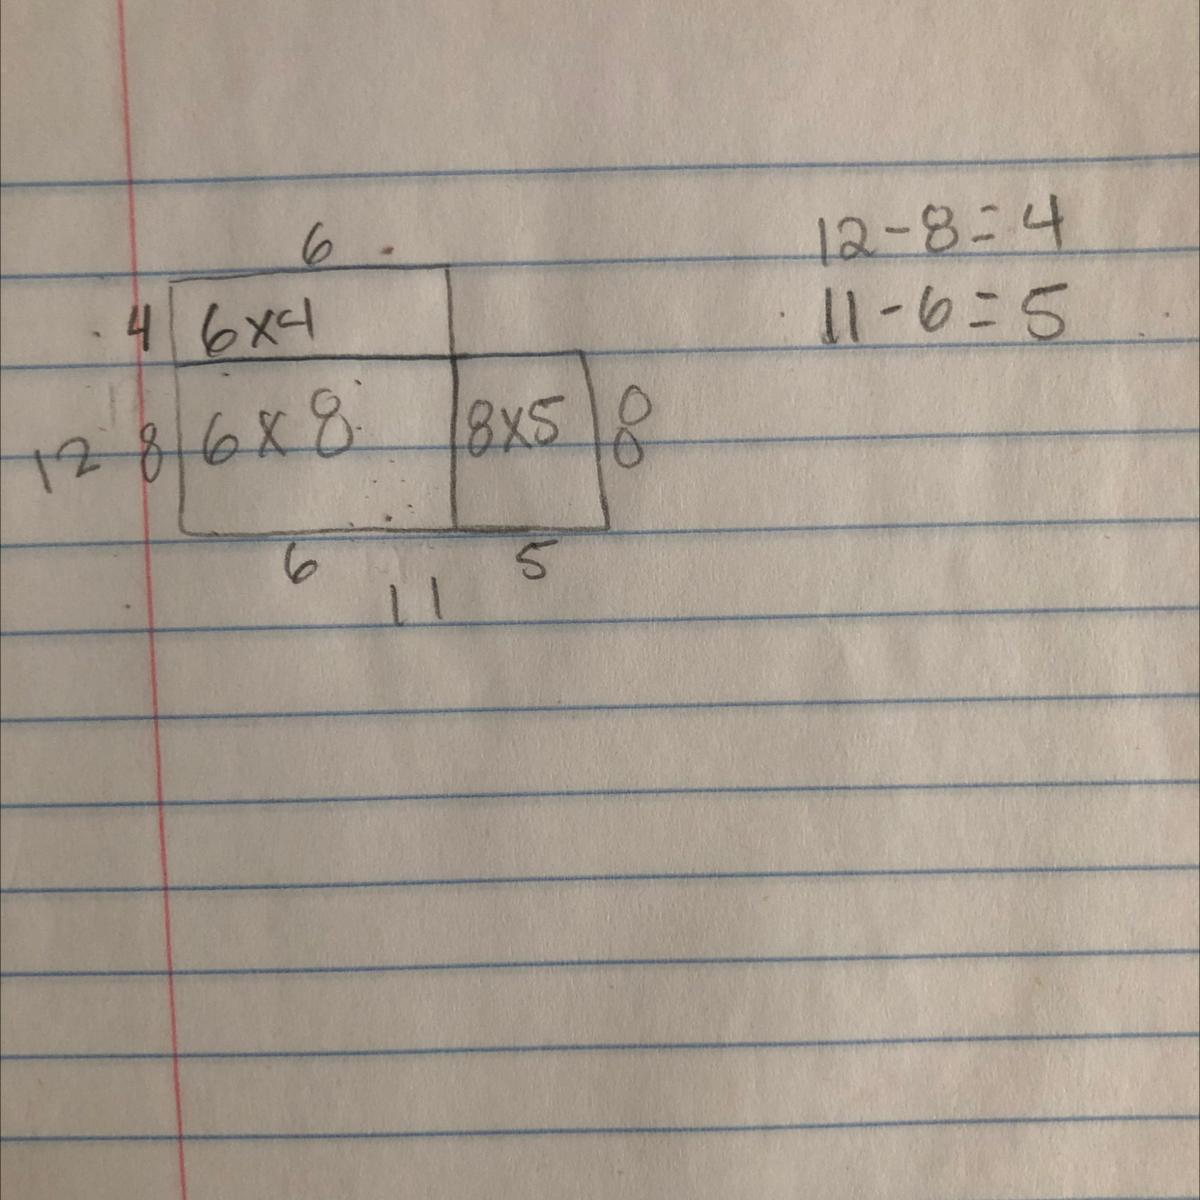 6
4 6x4
12 8 6 x 8 8x5 8
6 5
11
12-8=4
11-6=5